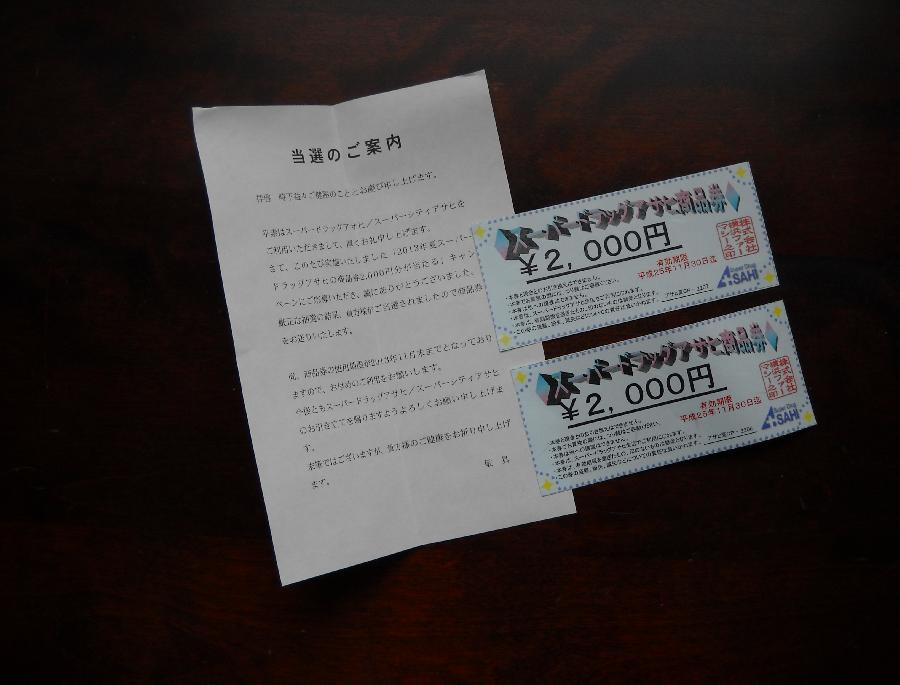 当選のご案内
拝啓 時下益々ご健勝のこととお慶び申し上げます。
平素はスーパードラッグアサヒ／スーパーシティアサヒを
ご利用いただきまして、厚くお礼申し上げます。
さて、このたび実施いたしました「2013年夏スーパー
ドラッグアサヒの商品券2,000円分が当たる」キャン
ペーンにご応募いただき、誠にありがとうございました。
厳正な抽選の結果、貴方様がご当選されましたので商品券
をお送りいたします。
尚、商品券の使用期限が2013年11月末までとなっており
ますので、お早めのご利用をお願いします。
今後ともスーパードラッグアサヒ／スーパーシティアサヒ
のお引き立てを賜りますようよろしくお願い申し上げま
す。
末筆ではございますが、貴士様のご健康をお祈り申し上げ
ます。
敬 具
スーパードラッグアサヒ商品券
¥2,000円
有効期限
平成25年11月30日迄
株式会社
横浜ファー
マシーの印
Super Drug
ASAHI
・本券と現金とのお引き換えはできません。
スーパードラッグアサヒ商品券
¥2,000円
有効期限
平成25年11月30日迄
株式会社
横浜ファー
マシーの印
Super Drug
ASAHI
・本券と現金とのお引き換えはできません。